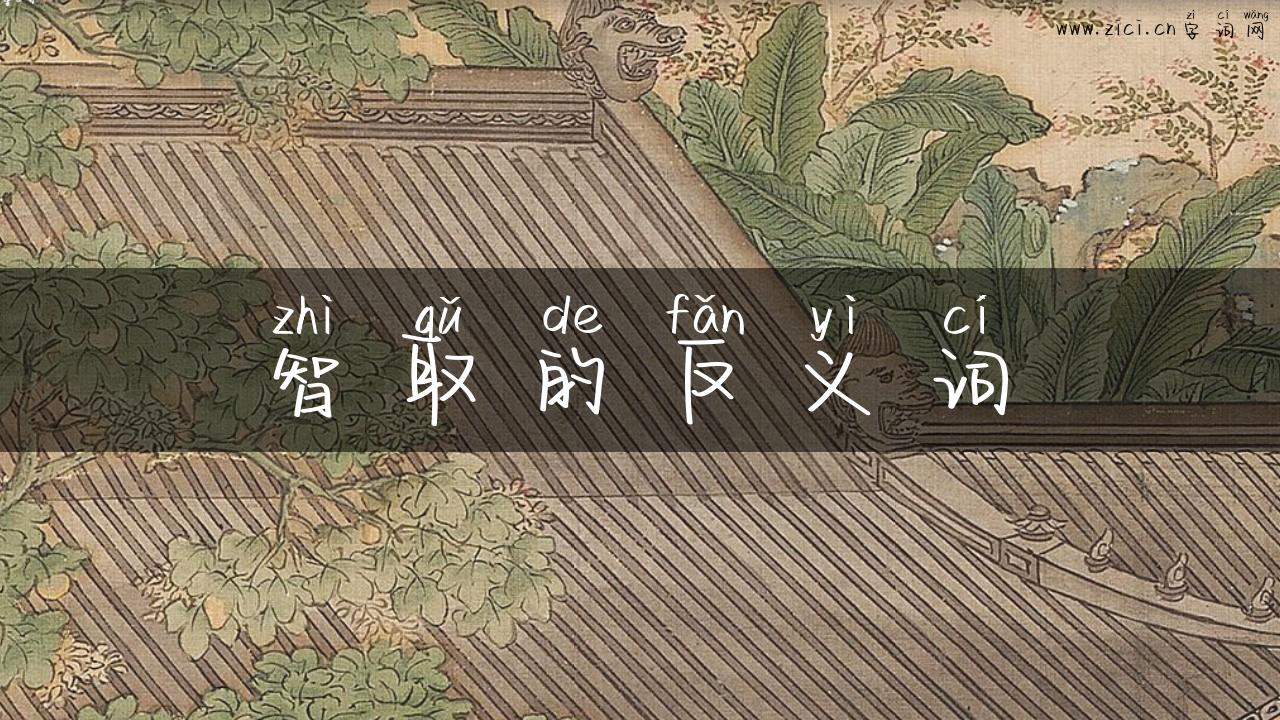 zì cí wǎng
www.zici.cn 字词网
zhì qǔ de fǎn yì cí
智取的反义词